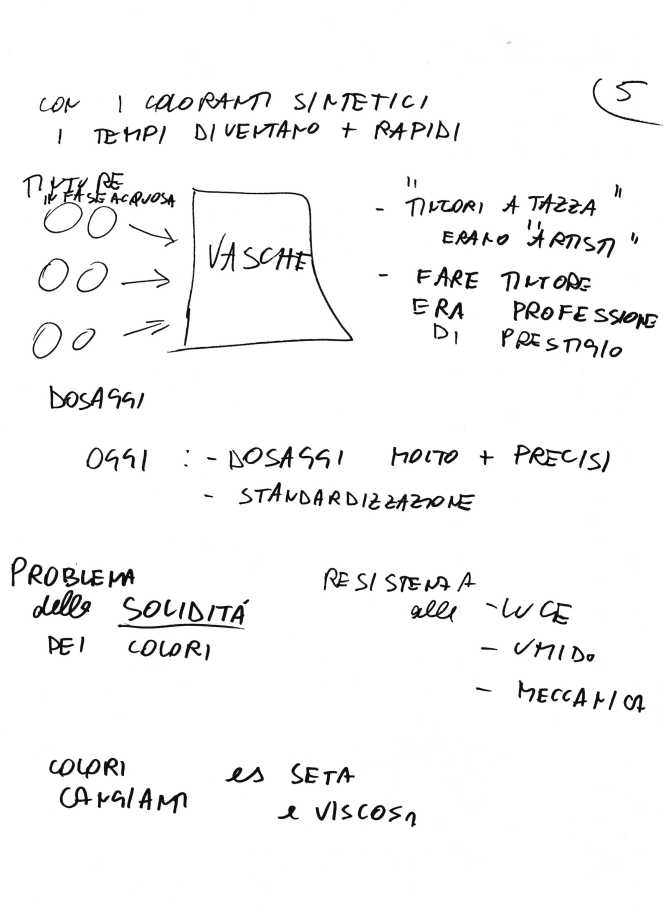 5
CON I COLORANTI SINTETICI
I TEMPI DIVENTANO + RAPIDI
TINTURE
IN FASE ACQUOSA
VASCHE
- "TINTORI A TAZZA"
ERANO "ARTISTI"
- FARE TINTORE
ERA PROFESSIONE
DI PRESTIGIO
DOSAGGI
OGGI : - DOSAGGI MOLTO + PRECISI
- STANDARDIZZAZIONE
PROBLEMA
della SOLIDITÁ
DEI COLORI
RESISTENZA
alla - LUCE
- UMIDO
- MECCANICA
COLORI
CANGIANTI
es SETA
e VISCOSA